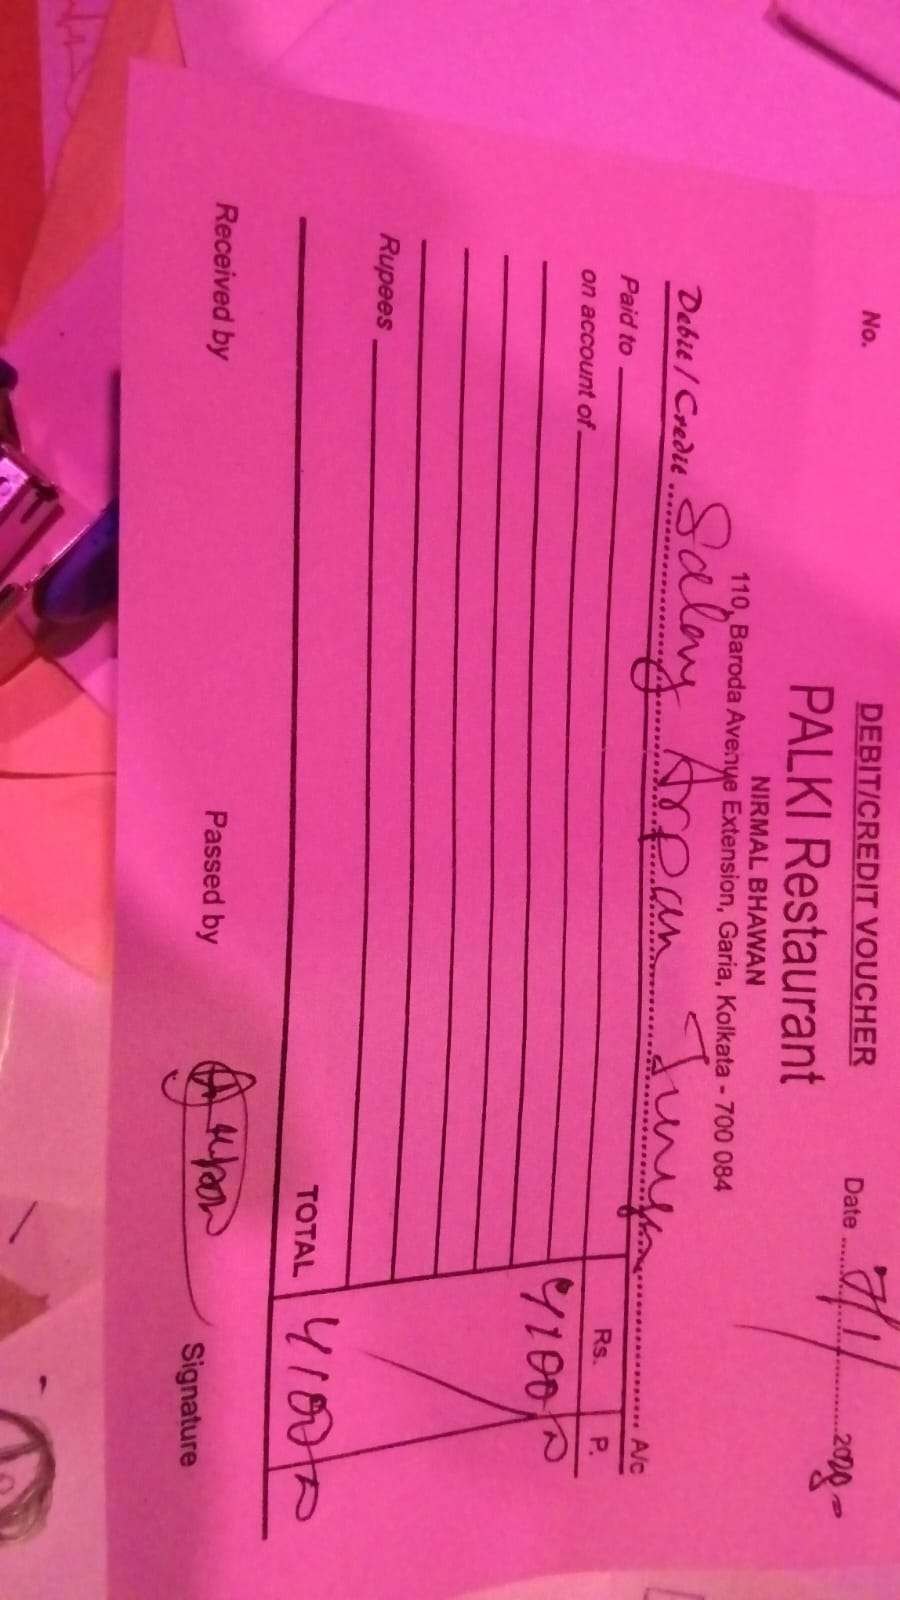 DEBIT/CREDIT VOUCHER
No.
Date 7/1
PALKI Restaurant
NIRMAL BHAWAN
110, Baroda Avenue Extension, Garia, Kolkata - 700 084
Debit / Credit Salary Arpan A/c
Paid to Rs. P.
on account of 4100
Rupees
TOTAL 4100
Received by Passed by Signature